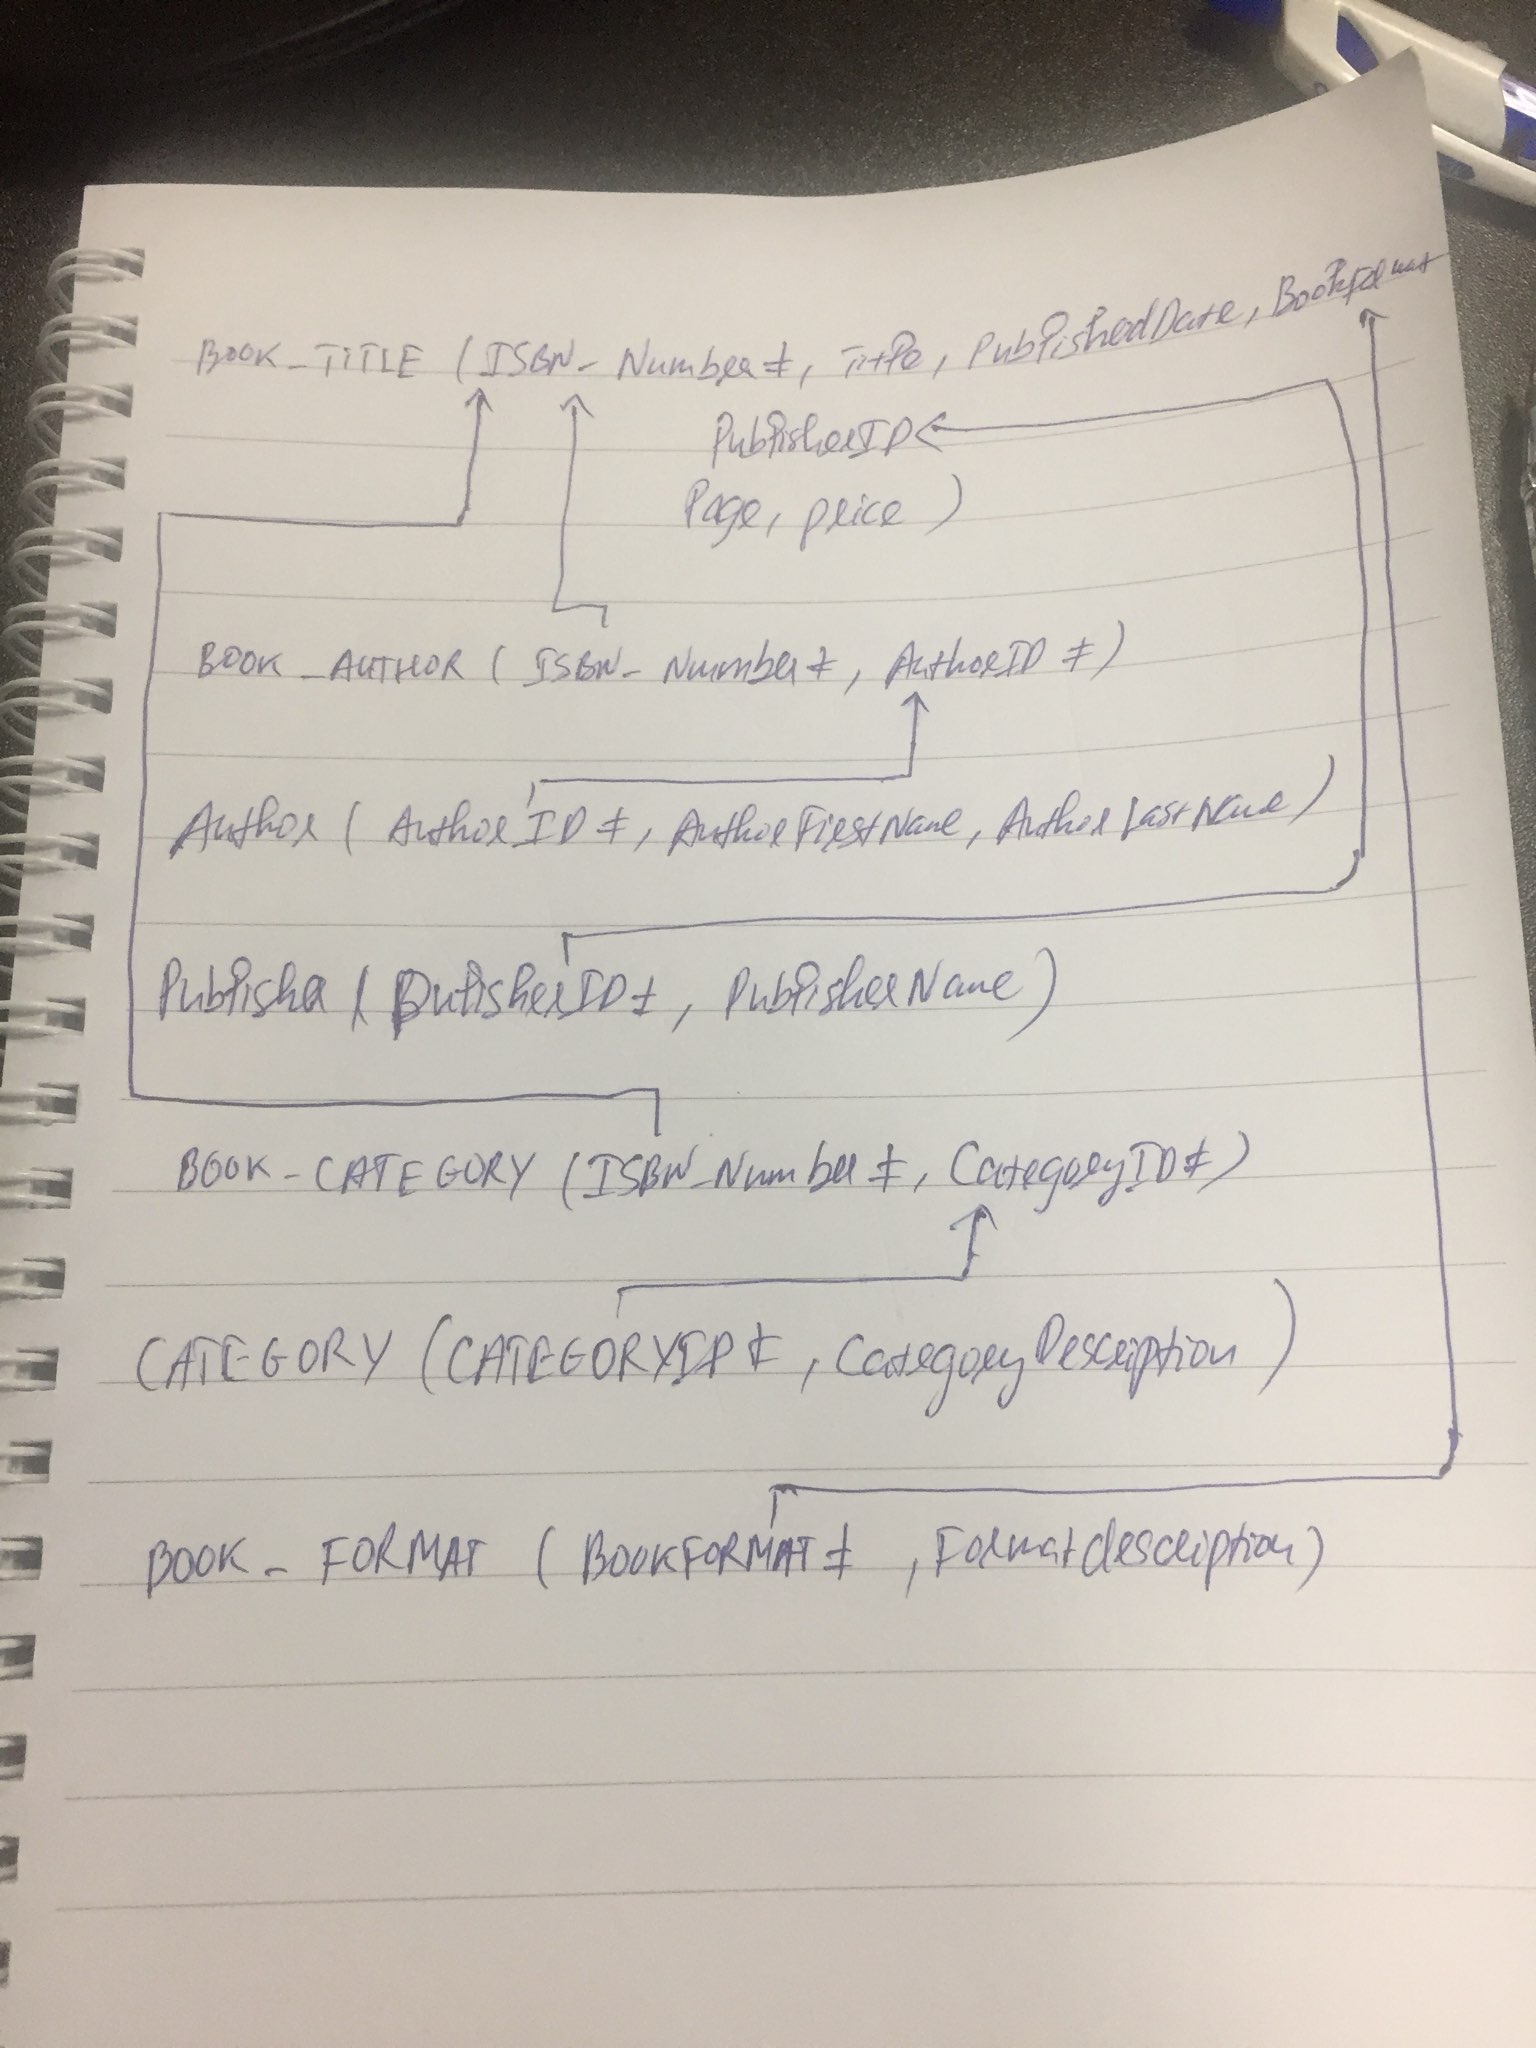 BOOK_TITLE (ISBN_Number#, Title, PublishedDate, BookFormat
PublisherID
Page, price)
BOOK_AUTHOR (ISBN_Number#, AuthorID#)
Author (AuthorID#, AuthorFirstName, AuthorLastName)
Publisher (PutisherID#, PublisherName)
BOOK_CATEGORY (ISBN_Number#, CategoryID#)
CATEGORY (CATEGORYID#, CategoryDescription)
BOOK_FORMAT (BOOKFORMAT#, Formatdescription)